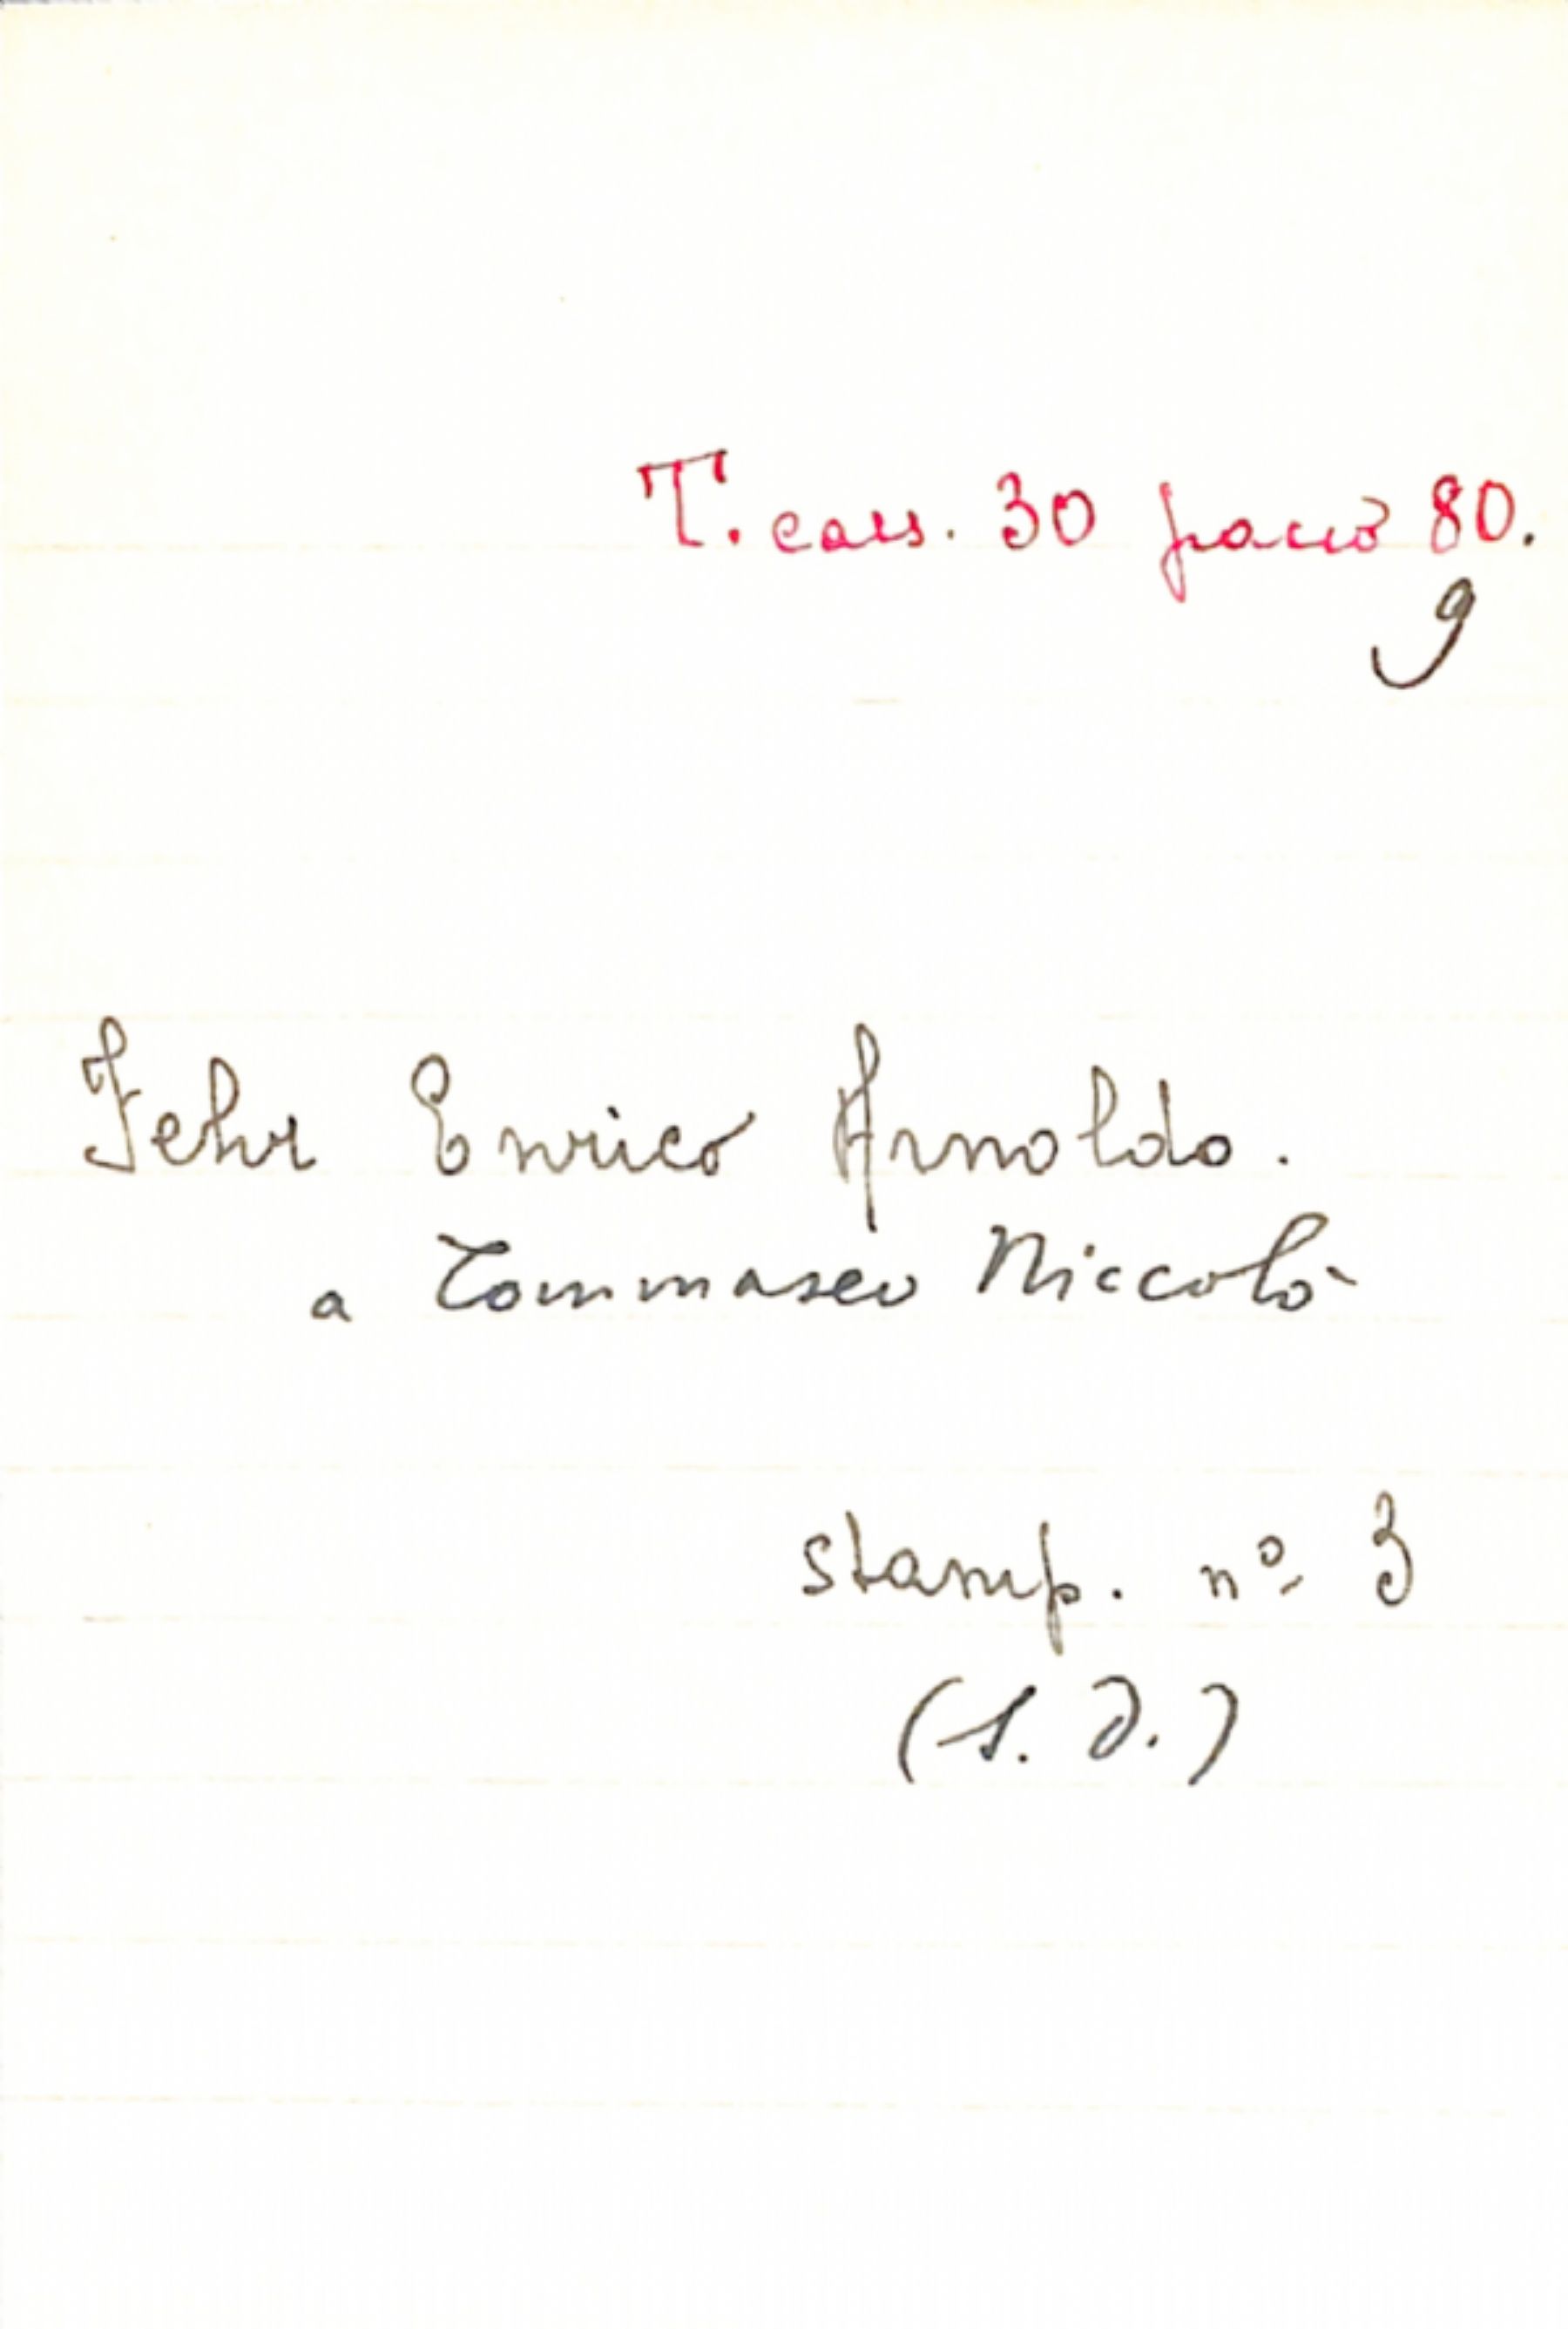 T. cass. 30 pacco 80.
9
Fehr Enrico Arnoldo.
a Tommaseo Niccolò
stamp. nº 3
(s. d.)